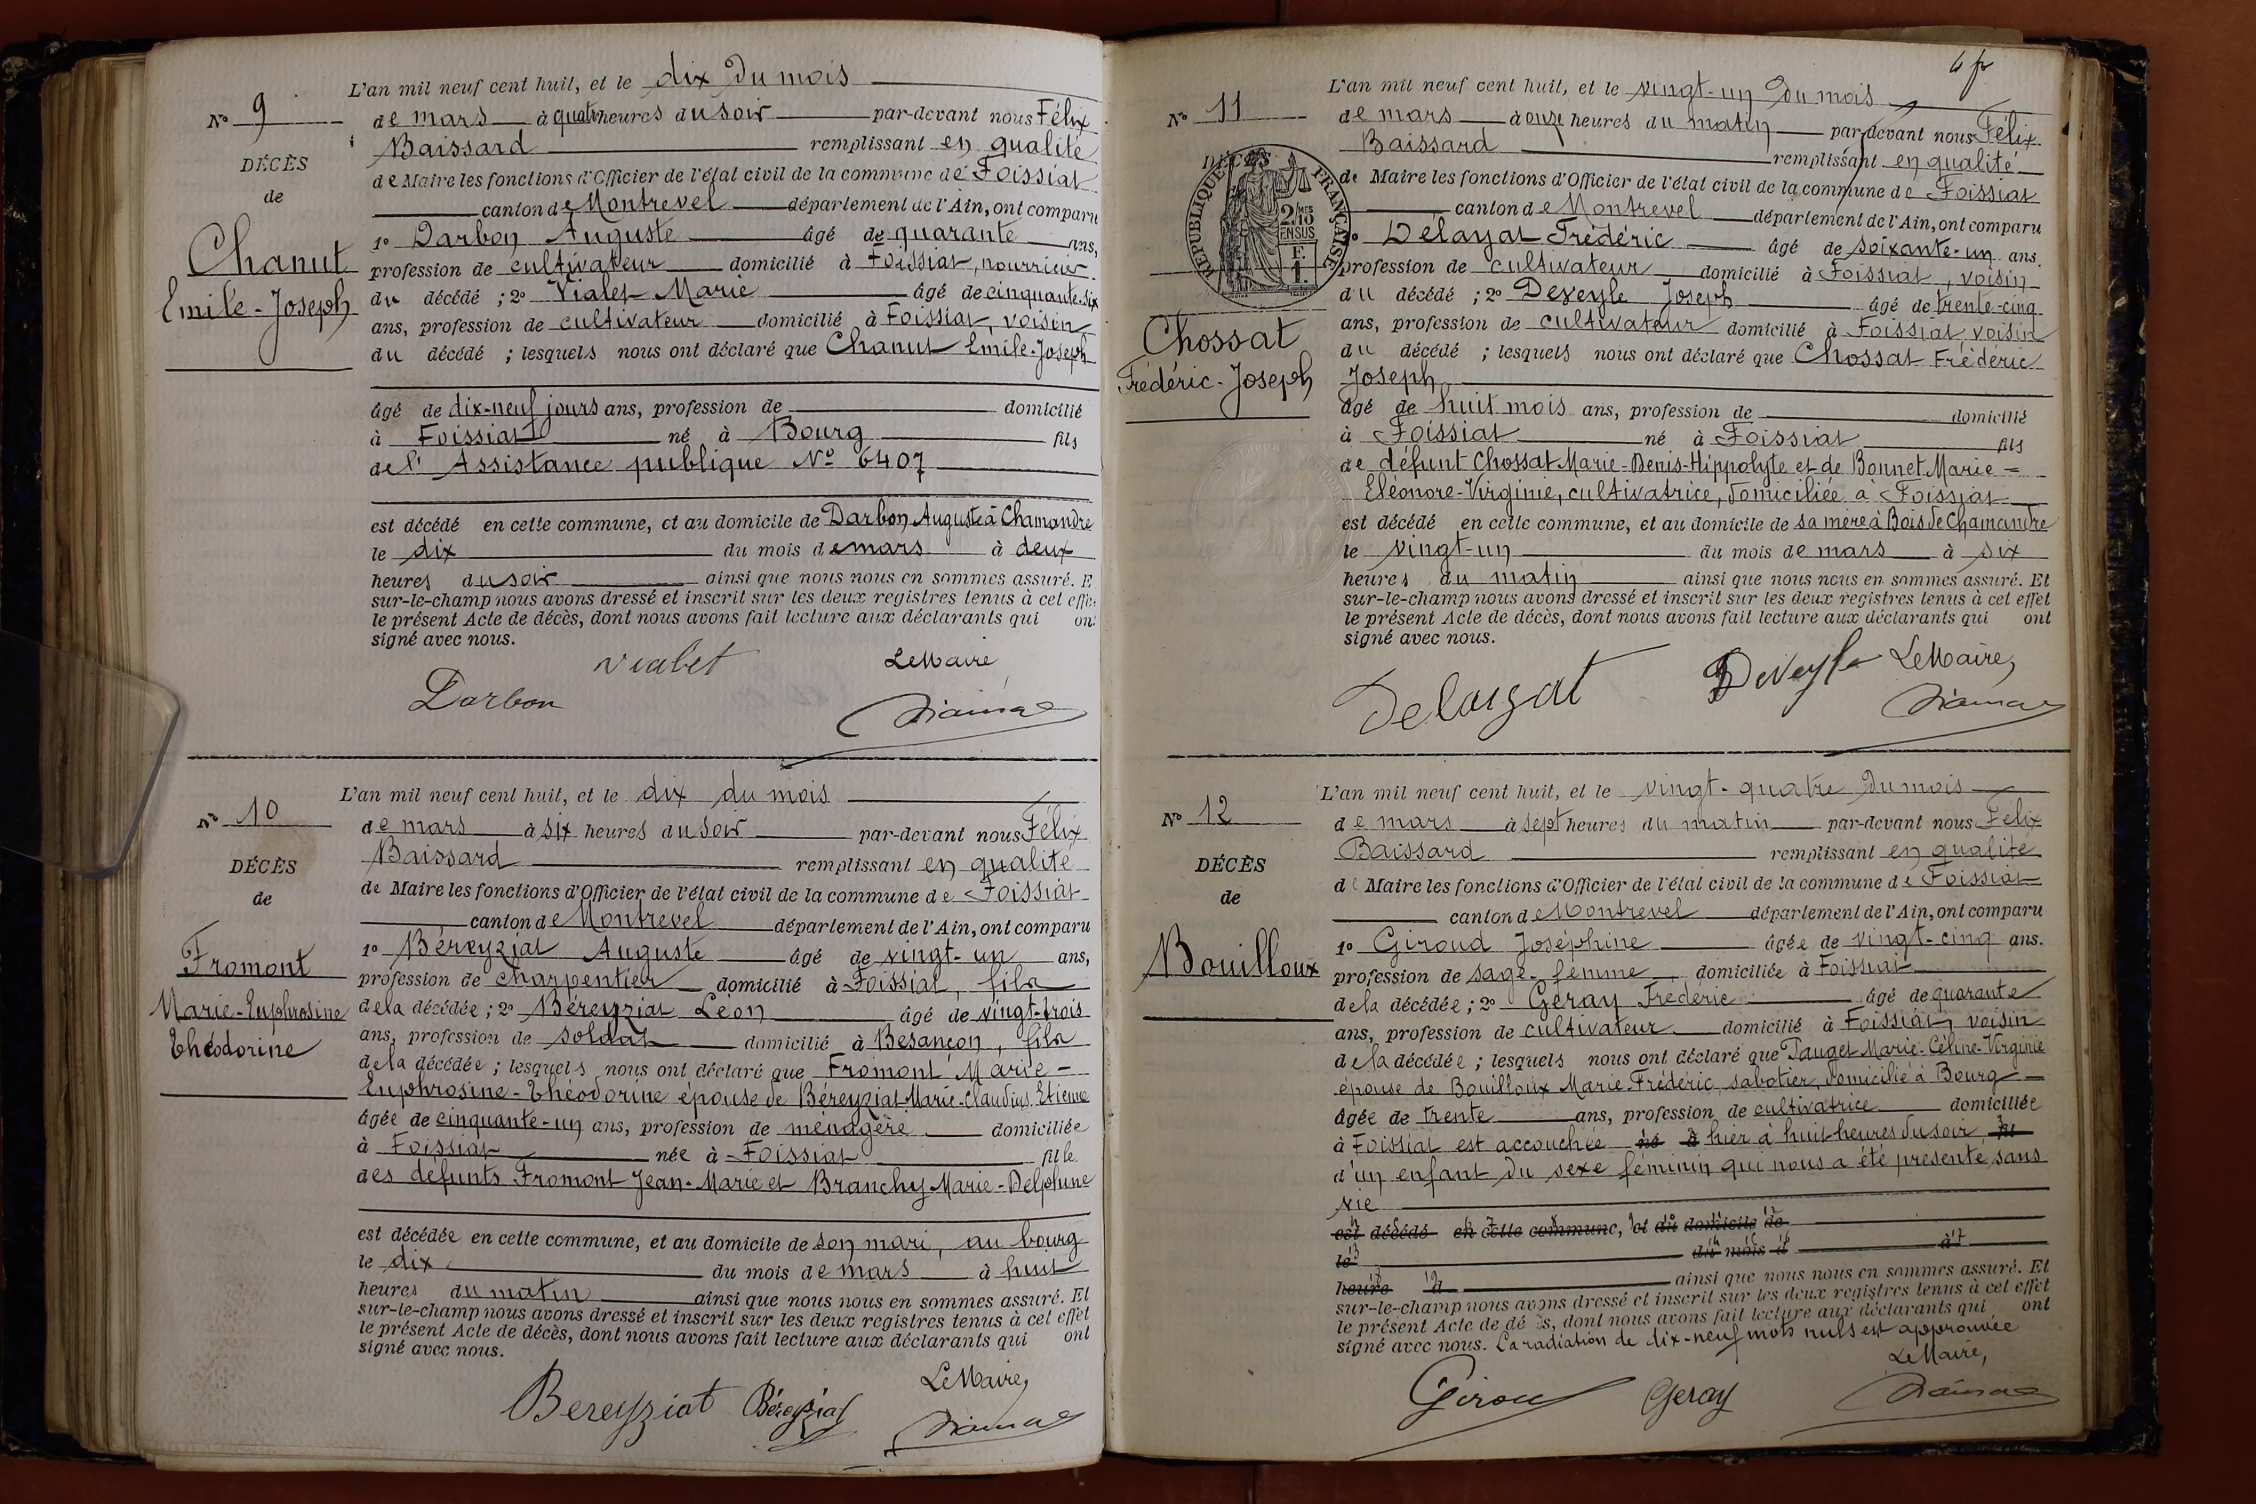 L'an mil neuf cent huit, et le dix du mois
No 9
de mars à quatre heures du soir par-devant nous Félix
Baissard remplissant en qualité
DÉCÈS
de Maire les fonctions d'Officier de l'état civil de la commune de Foissiat
de
canton de Montrevel département de l'Ain, ont comparu
1o Darbon Auguste âgé de quarante ans,
Chanut
profession de cultivateur domicilié à Foissiat, nourricier
Emile-Joseph
du décédé ; 2o Vialet Marie âgé de cinquante-six
ans, profession de cultivateur domicilié à Foissiat, voisin
du décédé ; lesquels nous ont déclaré que Chanut Emile-Joseph
âgé de dix-neuf jours ans, profession de domicilié
à Foissiat né à Bourg fils
de l'Assistance publique No 6407
est décédé en cette commune, et au domicile de Darbon Auguste à Chamandre
le dix du mois de mars à deux
heures du soir ainsi que nous nous en sommes assuré. E
sur-le-champ nous avons dressé et inscrit sur les deux registres tenus à cet effe
le présent Acte de décès, dont nous avons fait lecture aux déclarants qui on
signé avec nous.
Vialet Le Maire,
Darbon
L'an mil neuf cent huit, et le dix du mois
No 10
de mars à six heures du soir par-devant nous Félix
Baissard remplissant en qualité
DÉCÈS
de Maire les fonctions d'Officier de l'état civil de la commune de Foissiat
de
canton de Montrevel département de l'Ain, ont comparu
1o Béreyziat Auguste âgé de vingt-un ans,
Fromont
profession de charpentier domicilié à Foissiat, fils
Marie-Euphrosine
de la décédée ; 2o Béreyziat Léon âgé de vingt-trois
Théodorine
ans, profession de soldat domicilié à Besançon, fils
de la décédée ; lesquels nous ont déclaré que Fromont Marie-
Euphrosine-Théodorine épouse de Béreyziat Marie-Claudius Etienne
âgée de cinquante-un ans, profession de ménagère domiciliée
à Foissiat née à Foissiat fille
des défunts Fromont Jean-Marie et Branchy Marie-Delphine
est décédée en cette commune, et au domicile de son mari, au bourg
le dix du mois de mars à huit
heures du matin ainsi que nous nous en sommes assuré. Et
sur-le-champ nous avons dressé et inscrit sur les deux registres tenus à cet effet
le présent Acte de décès, dont nous avons fait lecture aux déclarants qui ont
signé avec nous.
Le Maire,
Bereyziat Béreyziat
L'an mil neuf cent huit, et le vingt-un du mois
No 11
de mars à onze heures du matin par-devant nous Félix
Baissard remplissant en qualité
DÉCÈS
RÉPUBLIQUE FRANÇAISE
2/10 EN SUS
F. 1.
de Maire les fonctions d'Officier de l'état civil de la commune de Foissiat
canton de Montrevel département de l'Ain, ont comparu
o Délayat Frédéric âgé de soixante-un ans.
profession de cultivateur domicilié à Foissiat, voisin
du décédé ; 2o Deveyle Joseph âgé de trente-cinq
Chossat
ans, profession de cultivateur domicilié à Foissiat, voisin
du décédé ; lesquels nous ont déclaré que Chossat Frédéric
Frédéric-Joseph
Joseph
âgé de huit mois ans, profession de domicilié
à Foissiat né à Foissiat fils
de défunt Chossat Marie-Denis-Hippolyte et de Bonnet Marie=
Eléonore-Virginie, cultivatrice, domiciliée à Foissiat
est décédé en cette commune, et au domicile de sa mère à Bois de Chamandre
le vingt-un du mois de mars à six
heures du matin ainsi que nous nous en sommes assuré. Et
sur-le-champ nous avons dressé et inscrit sur les deux registres tenus à cet effet
le présent Acte de décès, dont nous avons fait lecture aux déclarants qui ont
signé avec nous.
Delayat Deveyle Le Maire,
L'an mil neuf cent huit, et le vingt-quatre du mois
No 12
de mars à sept heures du matin par-devant nous Félix
Baissard remplissant en qualité
DÉCÈS
de Maire les fonctions d'Officier de l'état civil de la commune de Foissiat
de
canton de Montrevel département de l'Ain, ont comparu
1o Giroud Joséphine âgée de vingt-cinq ans.
Bouilloux
profession de sage-femme domiciliée à Foissiat
de la décédée ; 2o Geray Frédéric âgé de quarante
ans, profession de cultivateur domicilié à Foissiat, voisin
de la décédée ; lesquels nous ont déclaré que Pauget Marie-Céline-Virginie
épouse de Bouilloux Marie Frédéric, sabotier, domicilié à Bourg
âgée de trente ans, profession de cultivatrice domiciliée
à Foissiat est accouchée né à hier à huit heures du soir
d'un enfant du sexe féminin qui nous a été présenté sans
vie
est décédé en cette commune, et au domicile de
le du mois d à
heure d ainsi que nous nous en sommes assuré. Et
sur-le-champ nous avons dressé et inscrit sur les deux registres tenus à cet effet
le présent Acte de décès, dont nous avons fait lecture aux déclarants qui ont
signé avec nous. La radiation de dix-neuf mots nuls est approuvée
Le Maire,
Giroud Geray